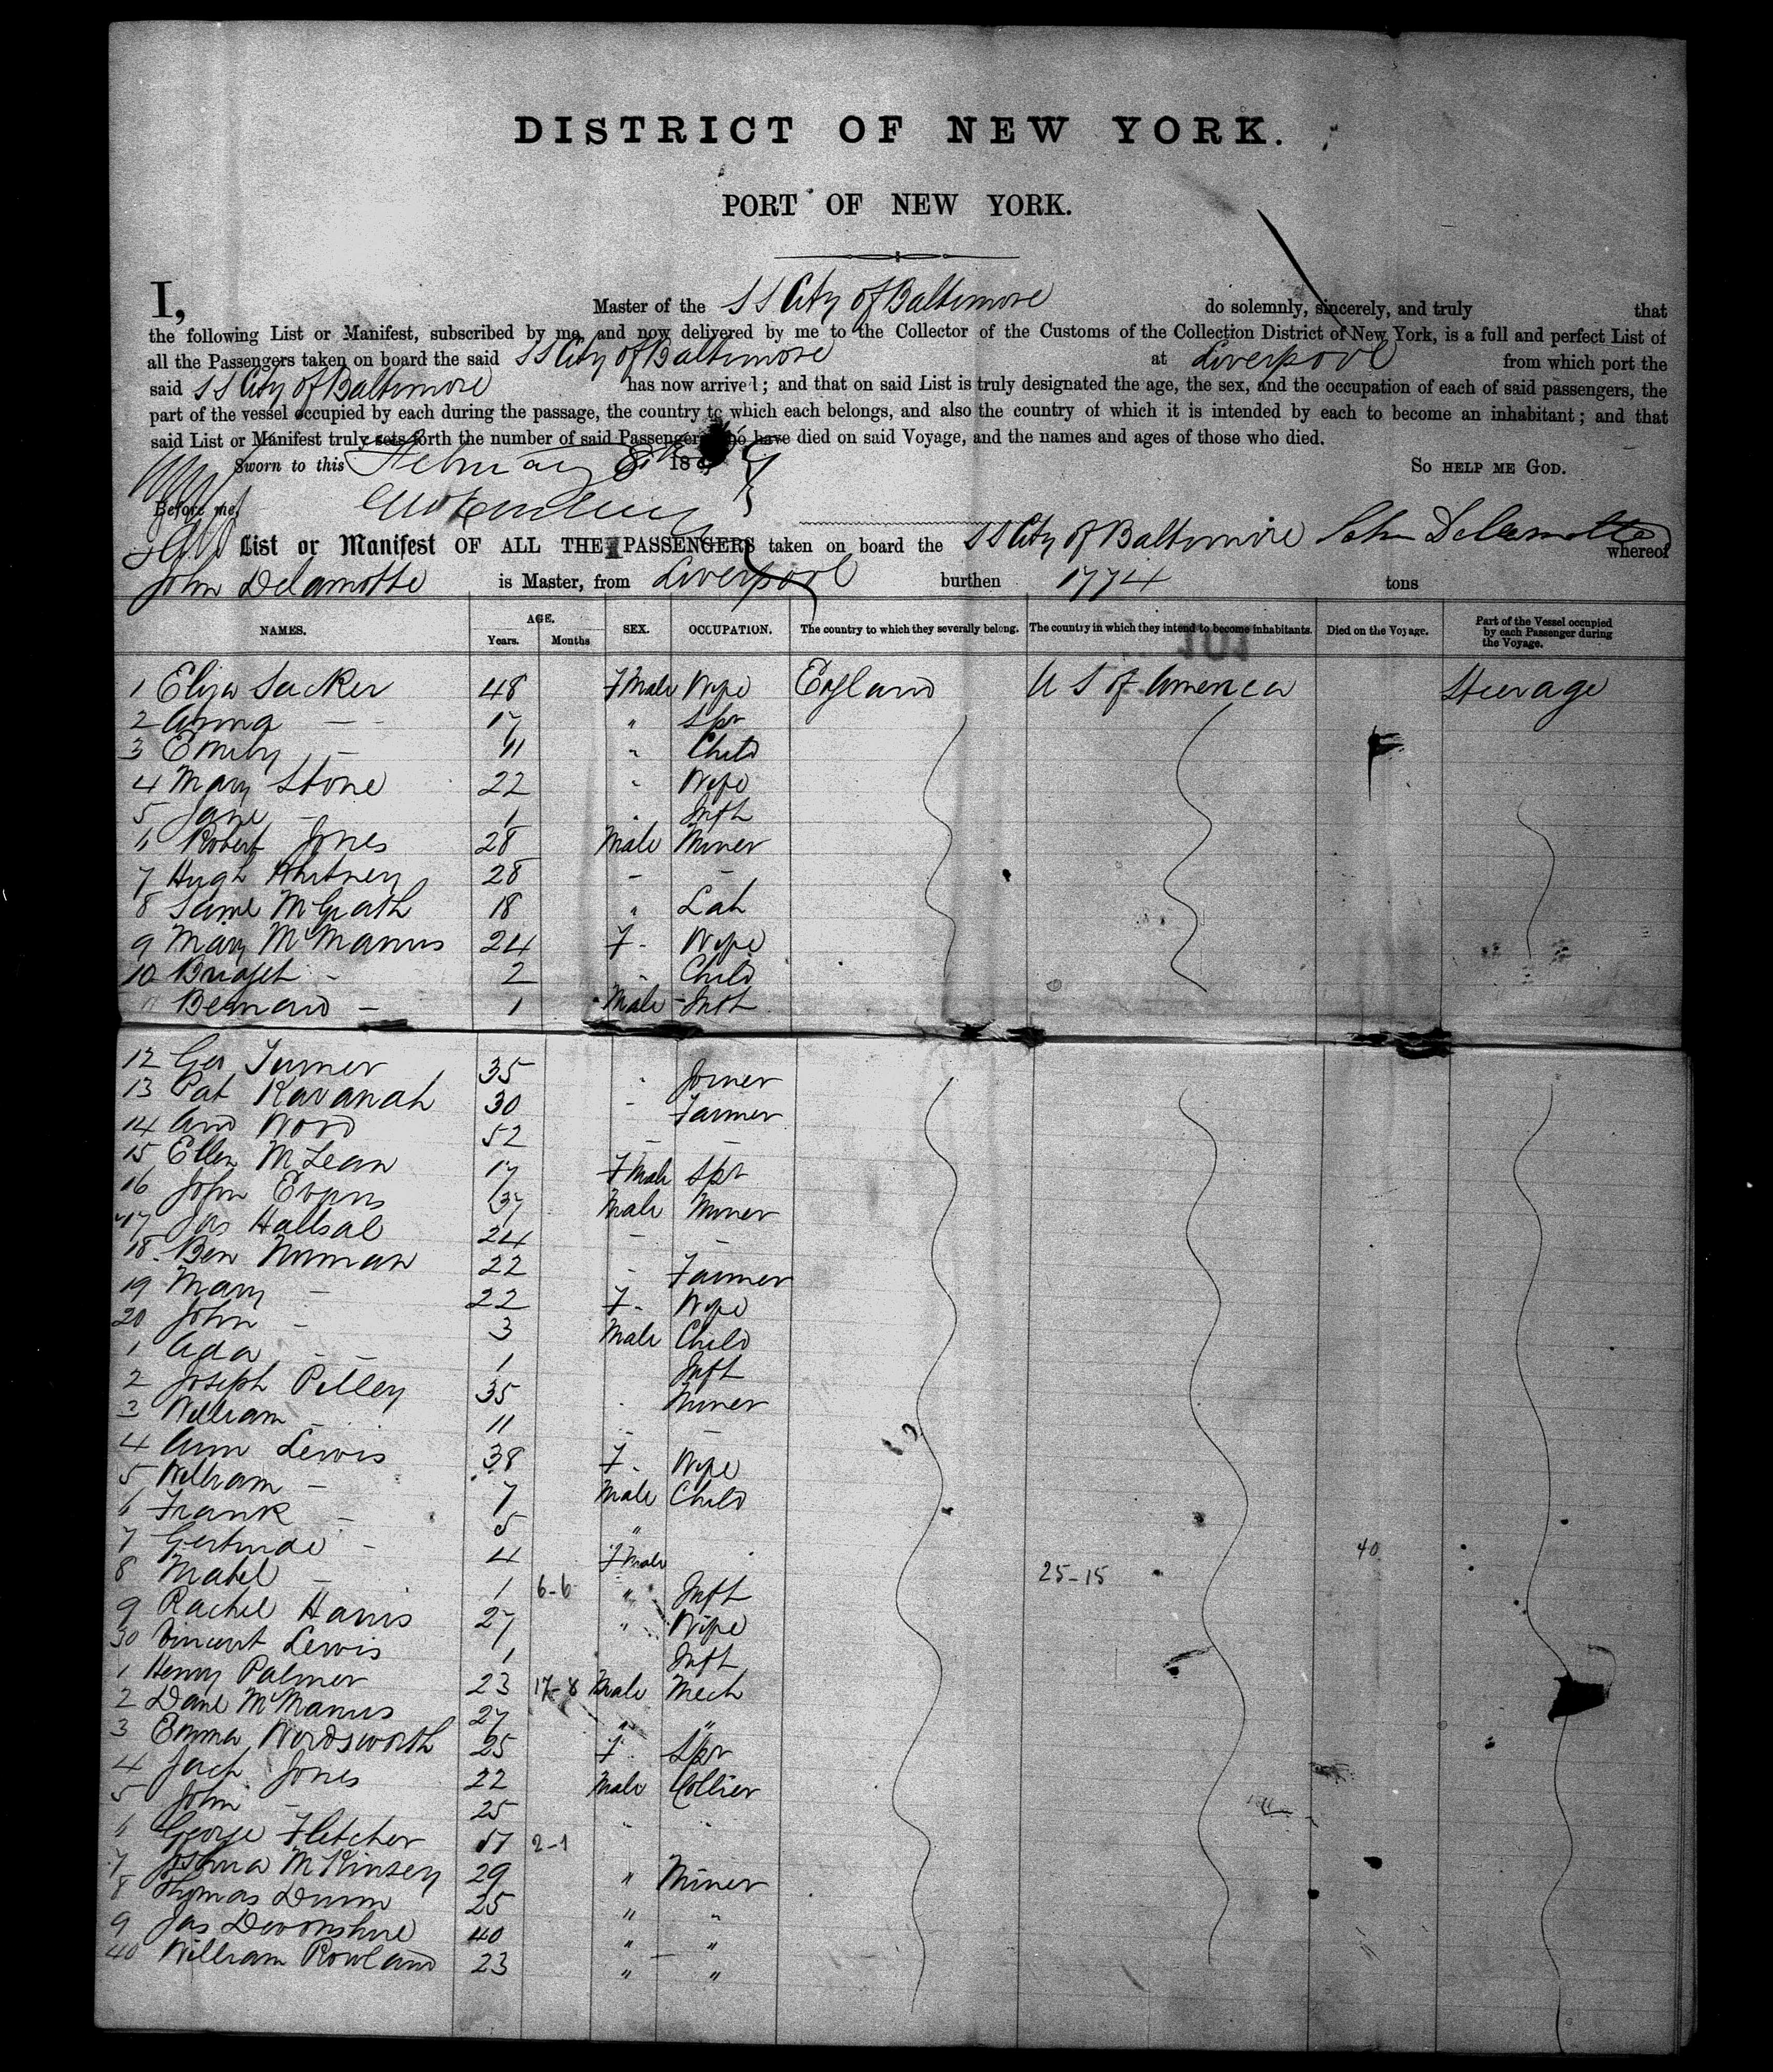 DISTRICT OF NEW YORK.
PORT OF NEW YORK.
I, Master of the S S City of Baltimore do solemnly, sincerely, and truly that
the following List or Manifest, subscribed by me, and now delivered by me to the Collector of the Customs of the Collection District of New York, is a full and perfect List of
all the Passengers taken on board the said S S City of Baltimore at Liverpool from which port the
said S S City of Baltimore has now arrived; and that on said List is truly designated the age, the sex, and the occupation of each of said passengers, the
part of the vessel occupied by each during the passage, the country to which each belongs, and also the country of which it is intended by each to become an inhabitant; and that
said List or Manifest truly sets forth the number of said Passengers who have died on said Voyage, and the names and ages of those who died.
Sworn to this February 8th 18 So help me God.
Before me,
List or Manifest OF ALL THE PASSENGERS taken on board the S S City of Baltimore John Delamotte whereof
John Delamotte is Master, from Liverpool burthen 1774 tons
NAMES. AGE. Years. Months SEX. OCCUPATION. The country to which they severally belong. The country in which they intend to become inhabitants. Died on the Voyage. Part of the Vessel occupied by each Passenger during the Voyage.
101
1 Eliza Sacker 48 FMale Wife England U S of America Steerage
2 Anna — — 17 " Spr
3 Emily — 11 " Child
4 Mary Stone 22 " Wife
5 Jane — 1 " Inft
6 Robert Jones 28 Male Miner
7 Hugh Whitney 28 — —
8 Saml McGrath 18 " Lab
9 Mary McManus 24 F - Wife
10 Bridget - 2 " Child
11 Bernard — 1 Male Inft
12 Geo Turner 35 " Joiner
13 Pat Kavanah 30 - Farmer
14 And Wood 52 — —
15 Ellen McLean 17 FMale Spr
16 John Evans 37 Male Miner
17 Jas Hallsal 24 — —
18 Ben Numan 22 - Farmer
19 Mary — 22 F - Wife
20 John — 3 Male Child
1 Ada — — 1 Inft
2 Joseph Pilley 35 " Miner
3 William — 11 - —
4 Ann Lewis 38 F - Wife
5 William — 7 Male Child
6 Frank — 5 "
7 Gertrude - 4 FMale 40
8 Mabel — 1 6-6 " Inft 25-15
9 Rachel Harris 27 " Wife
30 Vincent Lewis 1 Inft
1 Henry Palmer 23 17-8 Male Mech
2 Danl McManus 27 " "
3 Emma Wordsworth 25 F - Spr
4 Jack Jones 22 Male Collier
5 John — 25 " "
6 George Fletcher 2-1
7 Joshua McKinsey 29 " Miner
8 Thomas Dunn 25 " "
9 Jas Devonshire 40 " "
40 William Rowland 23 " "